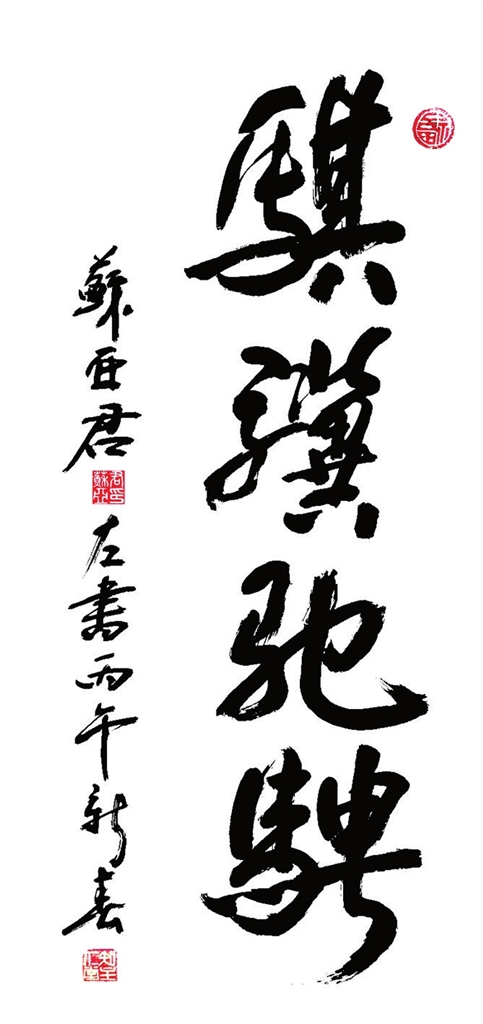 騏驥馳騁
蘇亞君
左書丙午新春